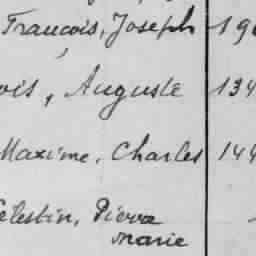 François, Joseph 190
ois, Auguste 134
Maxime, Charles 144
élestin, Pierre
Marie